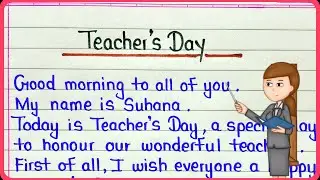 Teacher's Day
Good morning to all of you.
My name is Suhana.
Today is Teacher's Day, a
to honour our wonderful
First of all, I wish everyone a